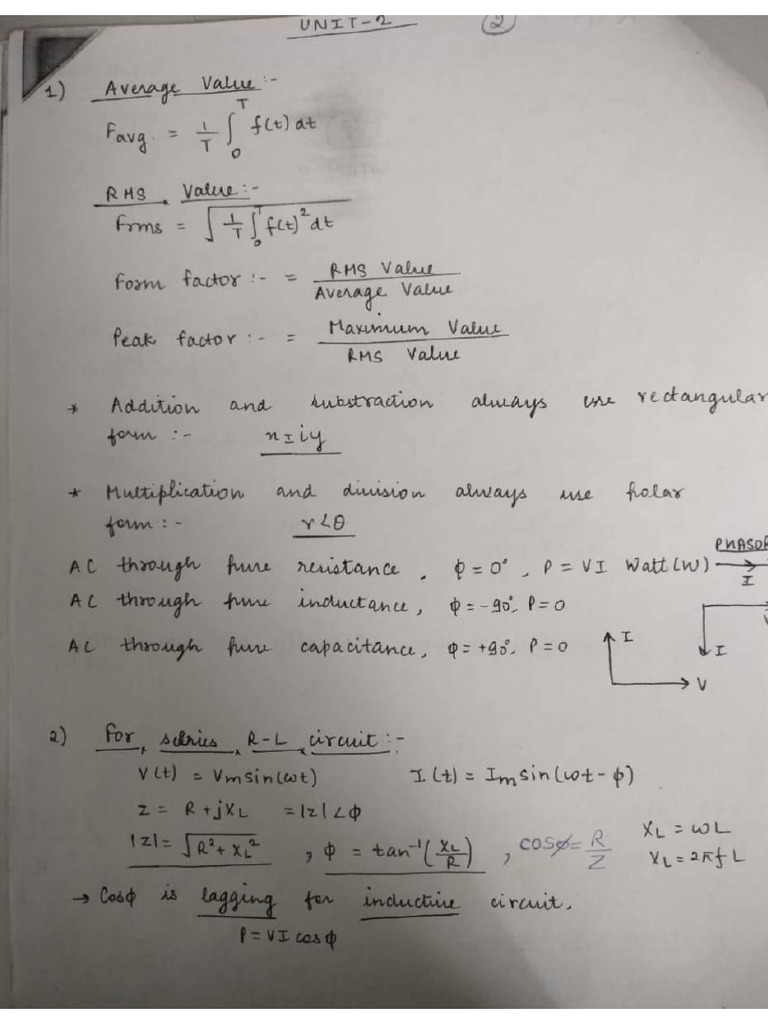 UNIT-2
2
1) Average Value :-
Favg. = 1/T ∫₀ᵀ f(t) dt
RMS Value :-
Frms = √(1/T ∫₀ᵀ f(t)² dt)
Form factor :- = RMS Value / Average Value
Peak factor :- = Maximum Value / RMS Value
* Addition and substraction always use rectangular
form :- x ± iy
* Multiplication and division always use polar
form :- r∠θ
PHASOR
AC through pure resistance, φ = 0°, P = VI Watt (W) I
AC through pure inductance, φ = -90°, P = 0
AC through pure capacitance, φ = +90°, P = 0 I V I
2) For series R-L circuit :-
V(t) = Vm sin(ωt) I(t) = Im sin(ωt - φ)
Z = R + jXL = |z|∠φ
|z| = √(R² + XL²), φ = tan⁻¹(XL/R), cosφ = R/Z XL = ωL
XL = 2πfL
→ Cosφ is lagging for inductive circuit.
P = VI cosφ